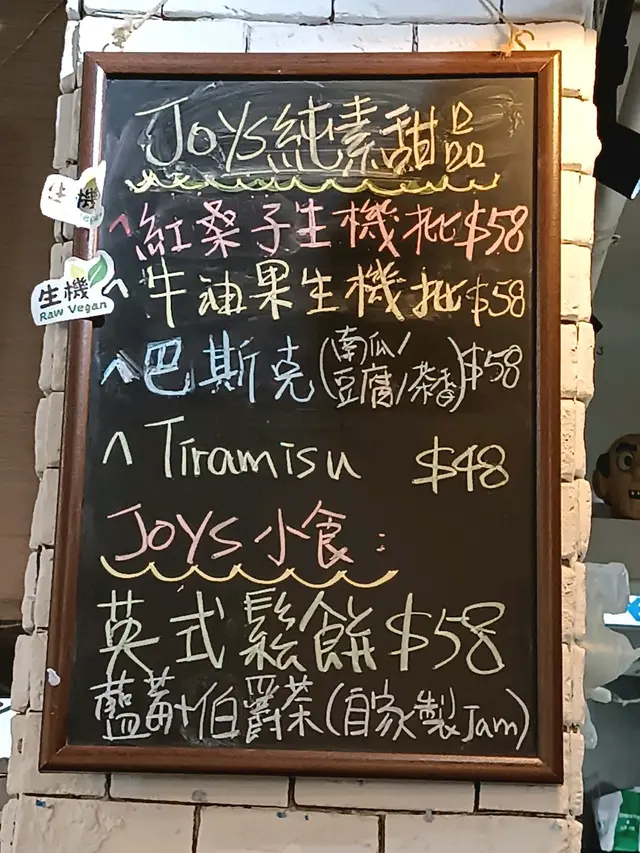 Joys純素甜品
生機
^紅桑子生機批$58
生機
Raw Vegan
^牛油果生機批$58
^巴斯克(南瓜/豆腐/茶香)$58
^Tiramisu $48
JOYS小食:
英式鬆餅$58
藍莓伯爵茶(自家製Jam)